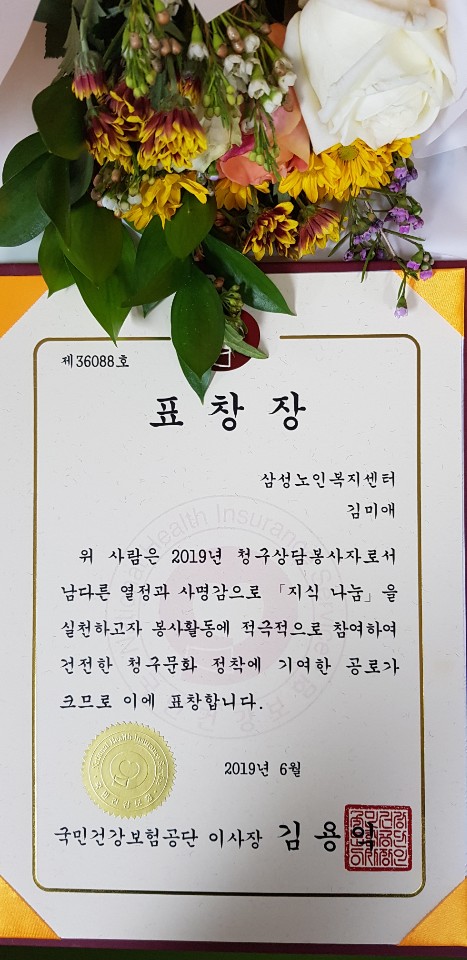 제36088호
표창장
삼성노인복지센터
김미애
위 사람은 2019년 청구상담봉사자로서
남다른 열정과 사명감으로 「지식 나눔」을
실천하고자 봉사활동에 적극적으로 참여하여
건전한 청구문화 정착에 기여한 공로가
크므로 이에 표창합니다.
2019년 6월
국민건강보험공단 이사장 김용익
Health Insurance